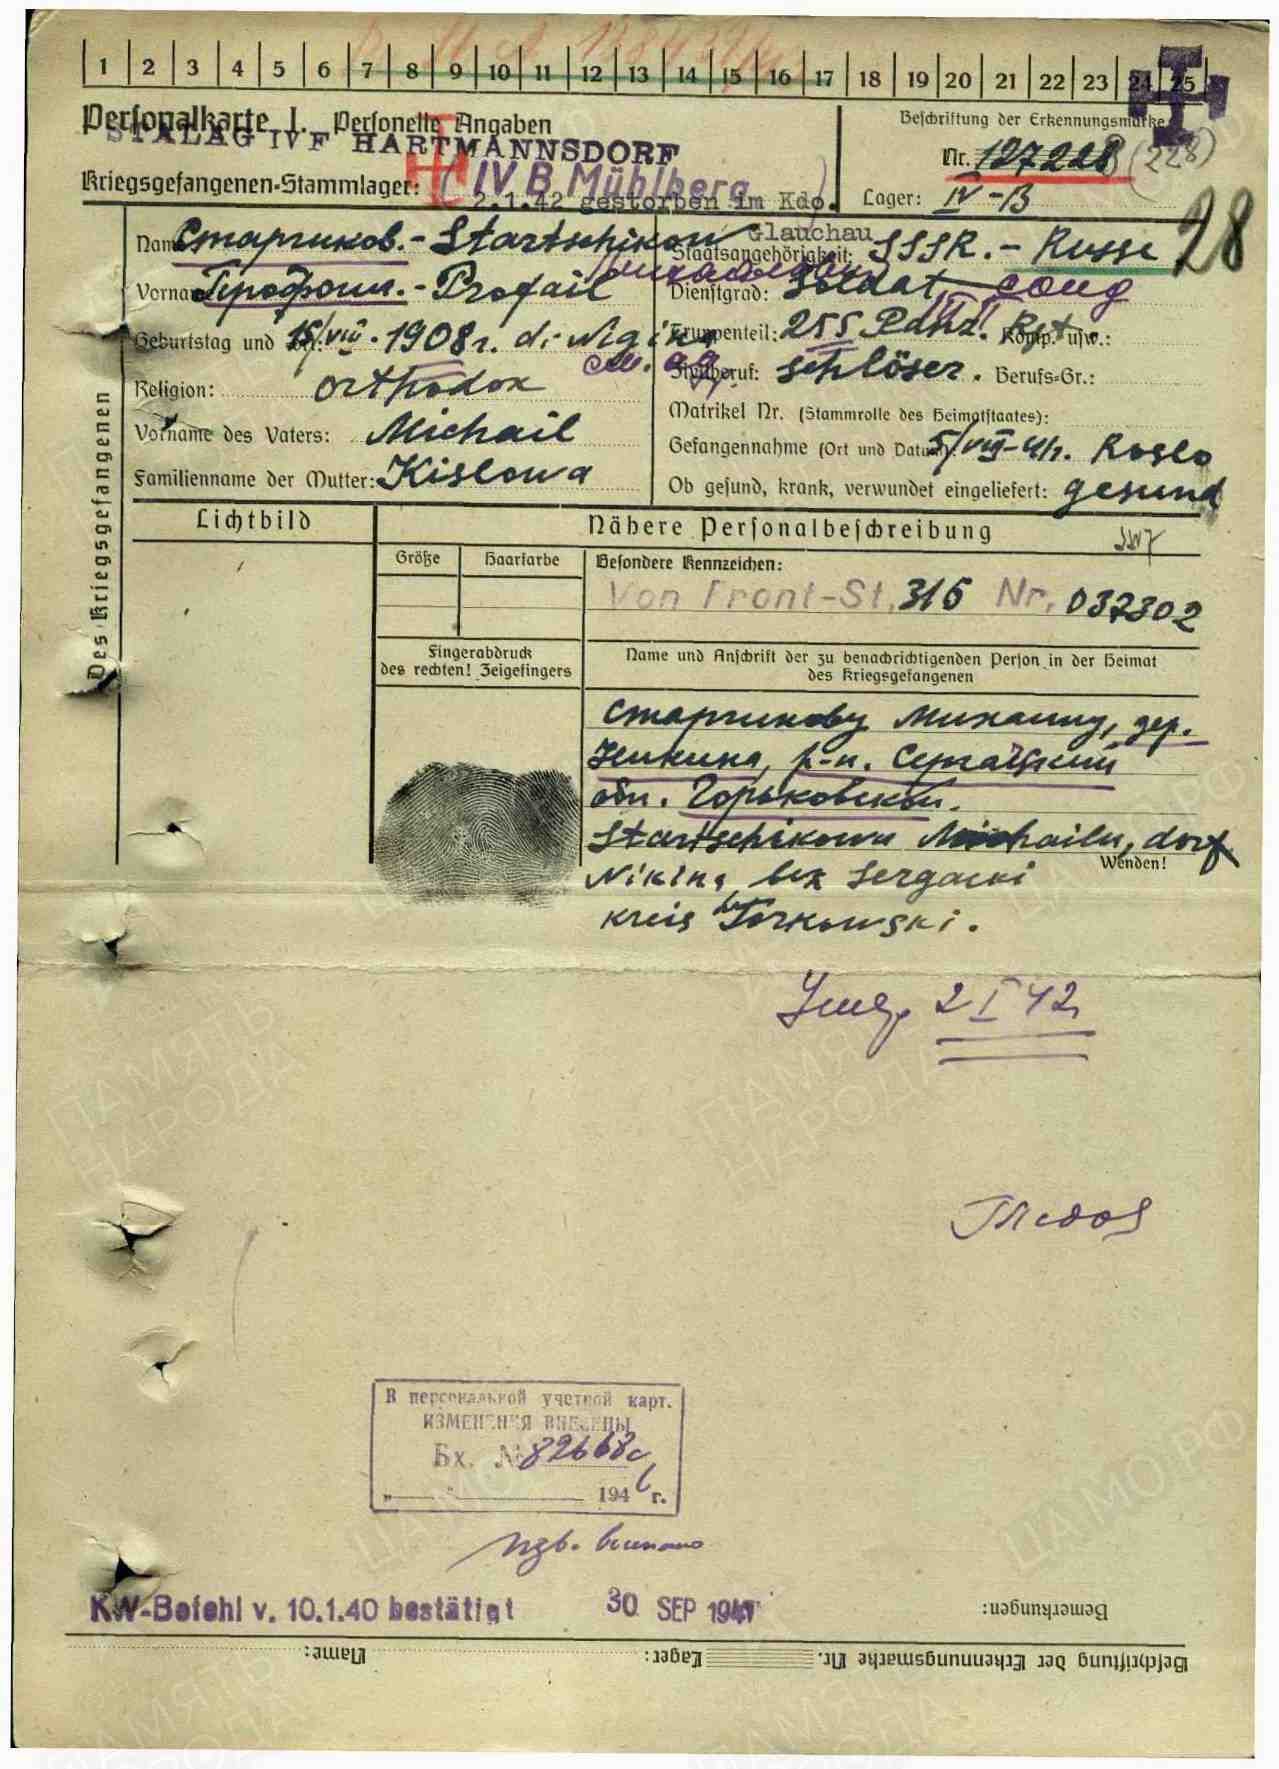 1 2 3 4 5 6 7 8 9 10 11 12 13 14 15 16 17 18 19 20 21 22 23 24 25
Personalkarte I. Personelle Angaben
STALAG IV F HARTMANNSDORF
Beschriftung der Erkennungsmarke
Nr. 127228 (228)
Kriegsgefangenen-Stammlager: (IV B Mühlberg)
Lager: IV-B
2.1.42 gestorben im Kdo.
Glauchau
28
Des Kriegsgefangenen
Name: Старчиков.- Startschikow
Staatsangehörigkeit: SSSR.- Russe
Vorname: - Profail
Dienstgrad: Soldat солд
Geburtstag und 15/VIII. 1908 г. d. Nigina
Truppenteil: 255 Panz. Rgt Komp. usw.:
Religion: orthodox
Zivilberuf: schlöser. Berufs-Gr.:
Matrikel Nr. (Stammrolle des Heimatstaates):
Vorname des Vaters: Michail
Gefangennahme (Ort und Datum): 5/VIII-41. Roslo
Familienname der Mutter: Kislowa
Ob gesund, krank, verwundet eingeliefert: gesund
Lichtbild
Nähere Personalbeschreibung
Größe
Haarfarbe
Besondere Kennzeichen:
Von Front-St. 316 Nr. 037302
Fingerabdruck
des rechten! Zeigefingers
Name und Anschrift der zu benachrichtigenden Person in der Heimat
des Kriegsgefangenen
Старчикову Михаилу, дер.
Никина, р-н. Сергачский
обл. Горьковский.
Startschikowu Michailu, dorf
Wenden!
Nikina, bez Sergacki
kreis Gorkowski.
Умер 2 I 42
В персональной учетной карт.
ИЗМЕНЕНИЯ ВНЕСЕНЫ
Вх. № 82668с
„ “ 1946 г.
KW-Befehl v. 10.1.40 bestätigt 30 SEP 1941
Bemerkungen:
Name:
Lager:
Beschriftung der Erkennungsmarke Nr.
ПАМЯТЬ НАРОДА
ЦАМО РФ